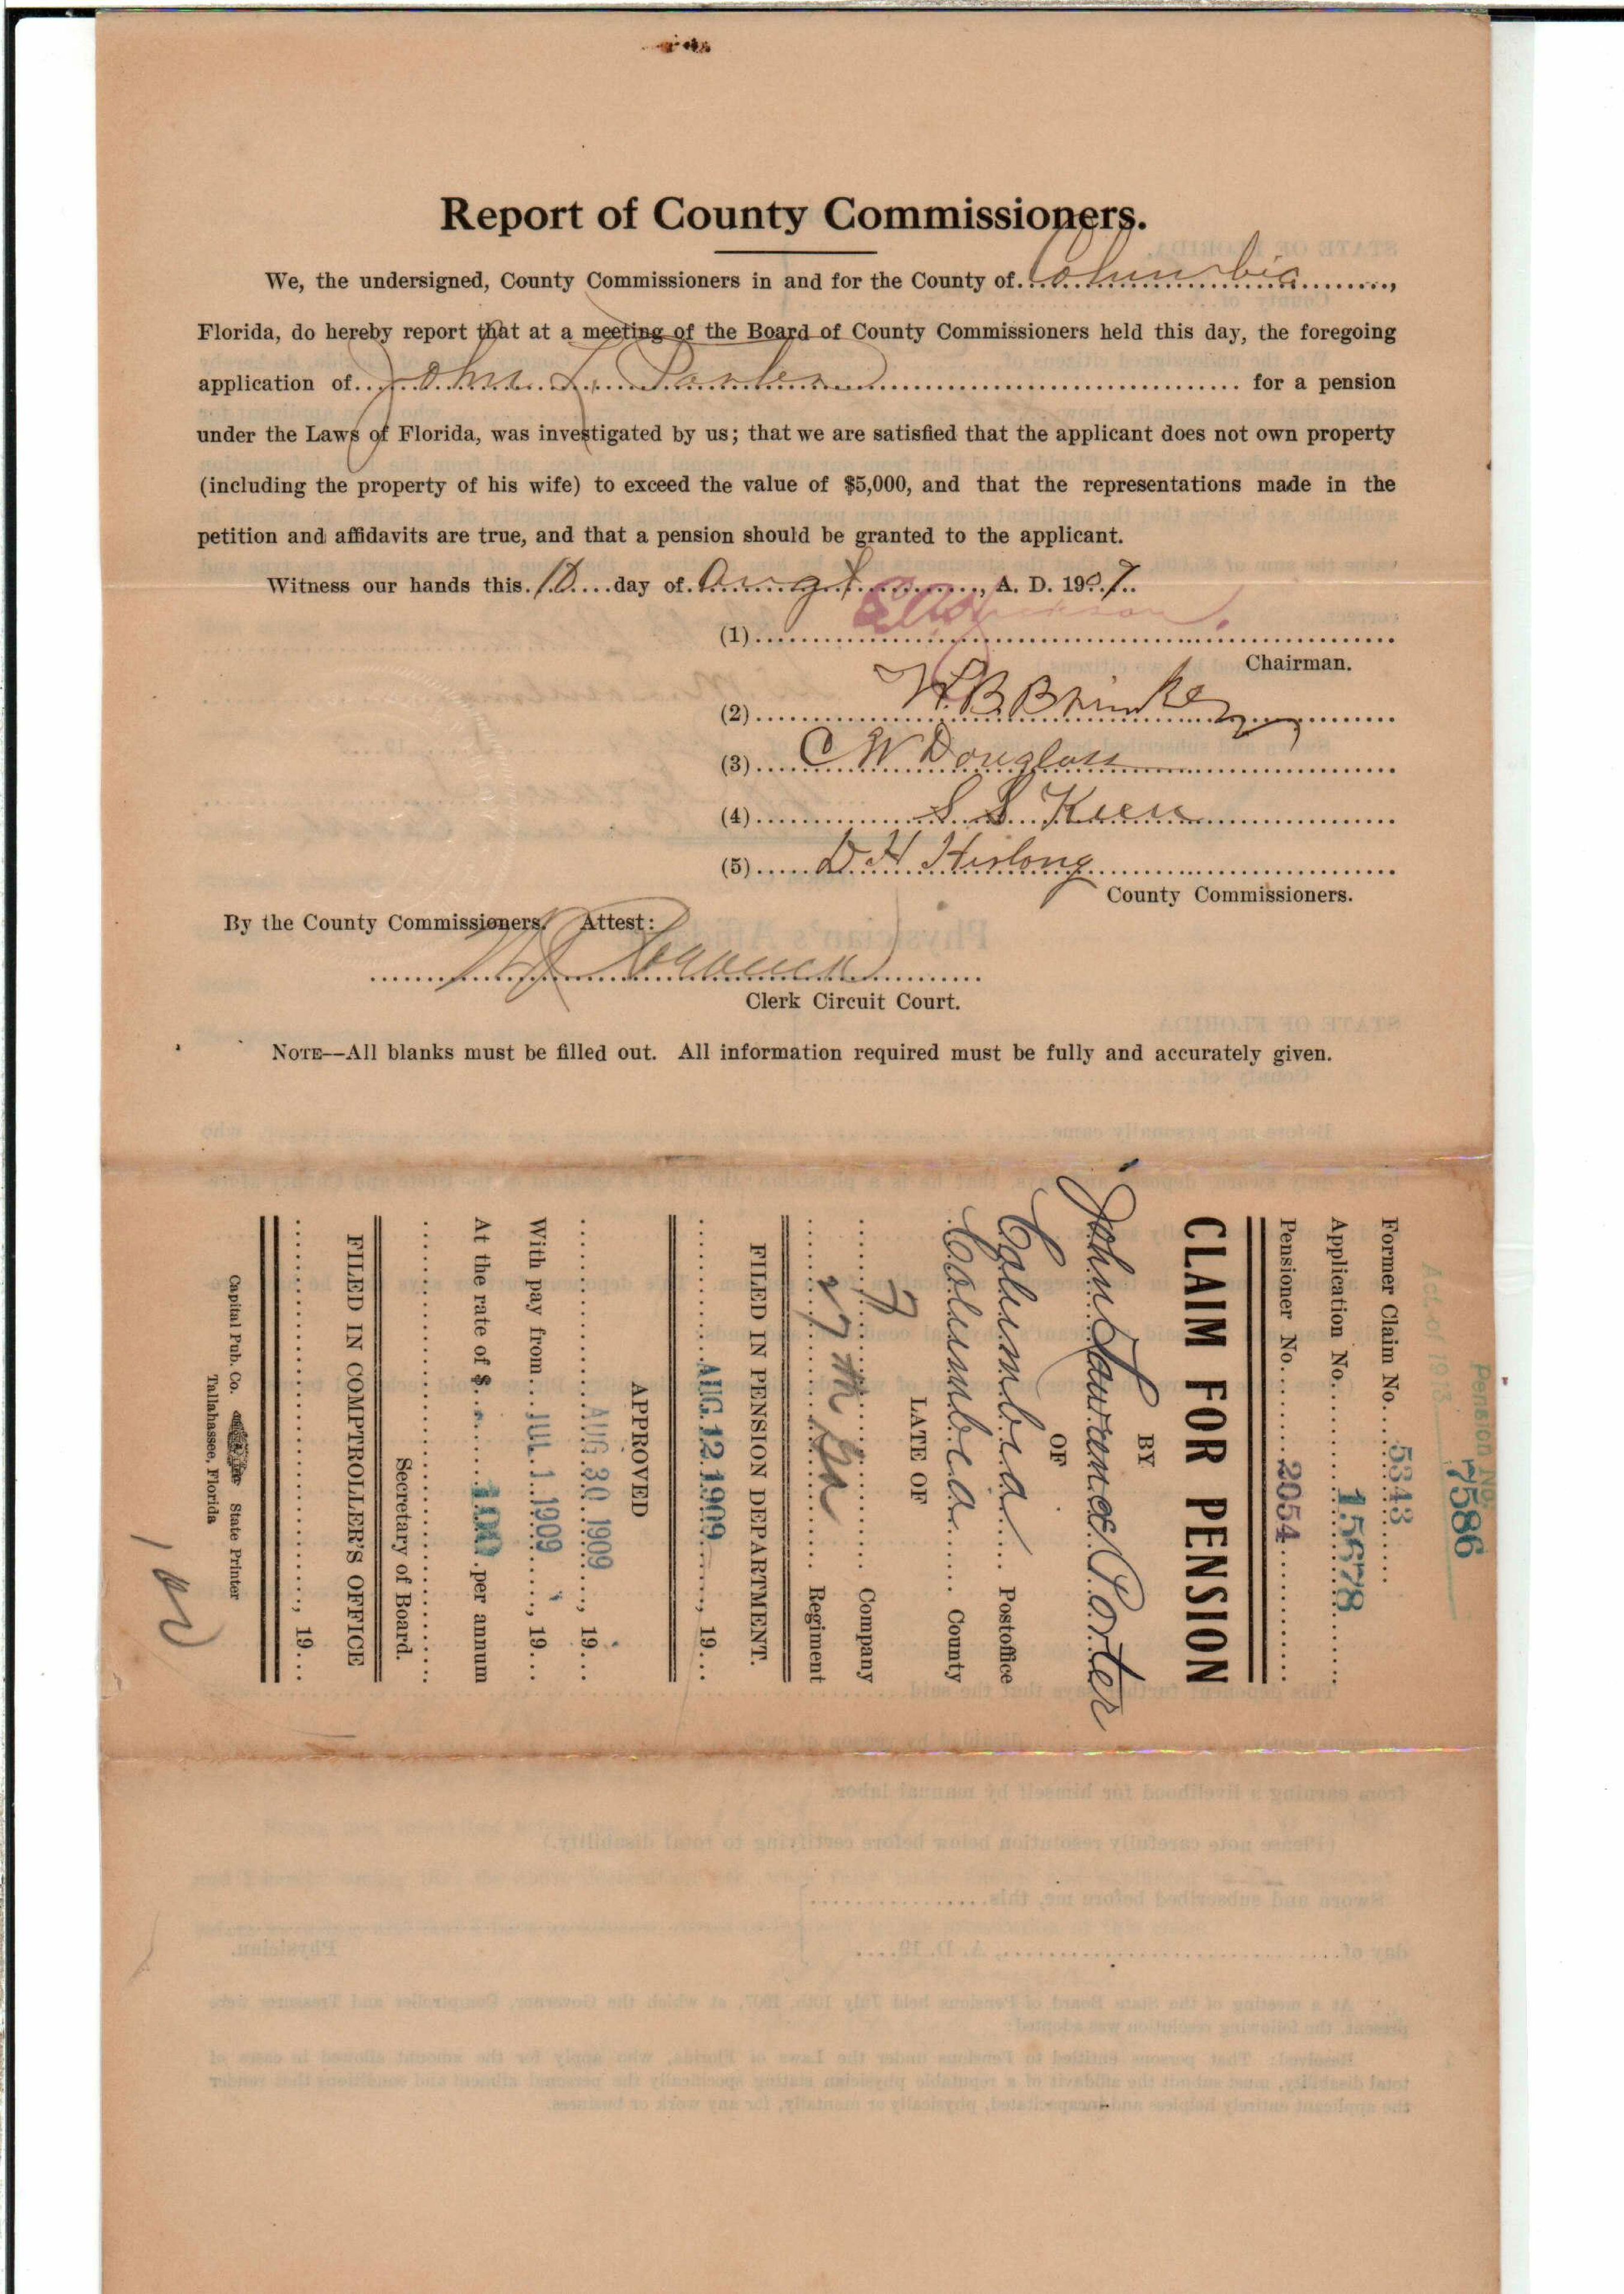 Report of County Commissioners.
We, the undersigned, County Commissioners in and for the County of Columbia,
Florida, do hereby report that at a meeting of the Board of County Commissioners held this day, the foregoing
application of John L. Porter for a pension
under the Laws of Florida, was investigated by us; that we are satisfied that the applicant does not own property
(including the property of his wife) to exceed the value of $5,000, and that the representations made in the
petition and affidavits are true, and that a pension should be granted to the applicant.
Witness our hands this 10 day of Augst, A. D. 190
(1)
Chairman.
(2) H.B. Brinkley
(3) C W Douglass
(4) S S Keen
(5) D. H Hislong
County Commissioners.
By the County Commissioners. Attest:
Clerk Circuit Court.
NOTE--All blanks must be filled out. All information required must be fully and accurately given.
Pension No. 7586
Act of 1913
Former Claim No. 5343
Application No. 15678
Pensioner No. 2054
CLAIM FOR PENSION
BY
John Lawrence Porter
OF
Columbia Postoffice
Columbia County
LATE OF
Company
Regiment
FILED IN PENSION DEPARTMENT.
AUG 12 1909, 19
APPROVED
AUG 30 1909, 19
With pay from JUL 1 1909, 19
At the rate of $ 100 per annum
Secretary of Board.
FILED IN COMPTROLLER'S OFFICE
, 19
Capital Pub. Co. State Printer
Tallahassee, Florida